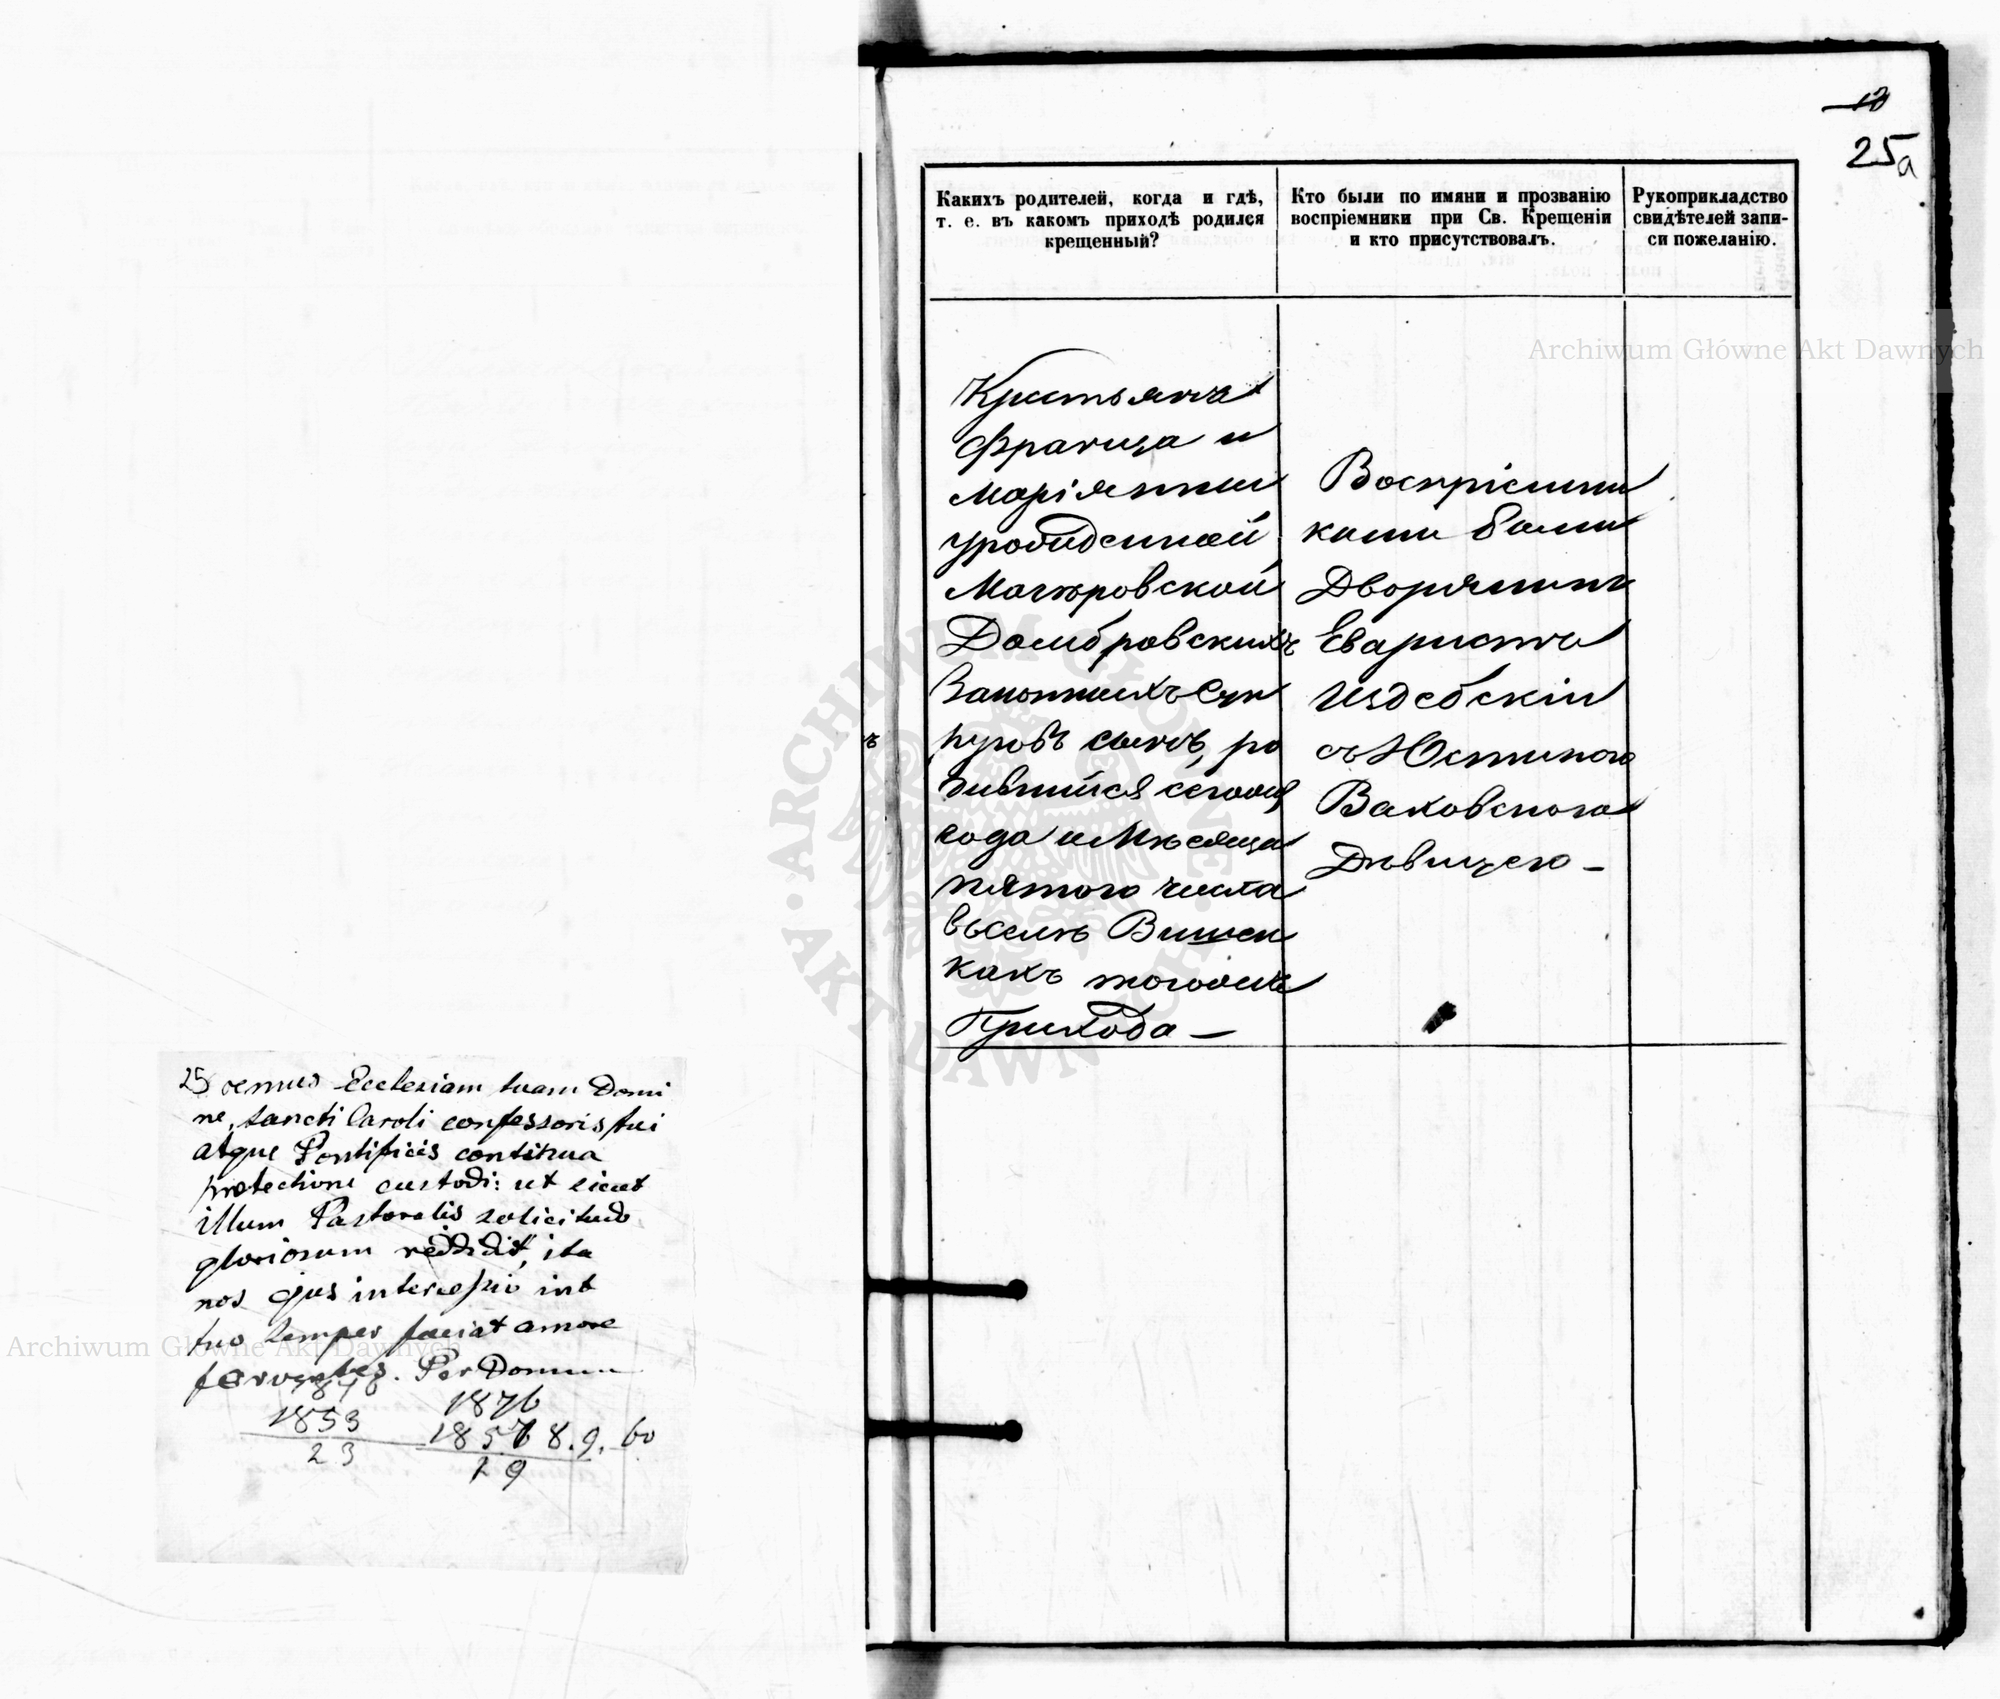 12
25a
Какихъ родителей, когда и гдѣ,
т. е. въ какомъ приходѣ родился
крещенный?
Кто были по имяни и прозванію
воспріемники при Св. Крещеніи
и кто присутствовалъ.
Рукоприкладство
свидѣтелей запи-
си пожеланію.
Крестьянъ
Франца и
Маріянны
урожденной
Домбровскихъ
Законныхъ Суп
руговъ сынъ, ро
дившійся сегожъ
года и Мѣсяца
пятого числа
въ селѣ Вишен
кахъ тогожъ
Прихода —
Воспріемни
ками были
Дворянинъ
Еваристъ
Издебскій
съ Юстиною
Ваковскою
Дѣвицею —
25 Ecclesiam tuam Domi
ne, Sancti Caroli confessoris tui
atque Pontificis continua
protectione custodi: ut sicut
illum Pastoralis solicitudo
gloriosum reddidit, ita
nos ejus intercessio in t
tuo semper faciat amore
ferventes. Per Dominu
1876
1853
23
1876
1857 8.9. 60
29
Archiwum Główne Akt Dawnych
Archiwum Główne Akt Dawnych
ARCHIWUM GŁÓWNE · AKT DAWNYCH ·